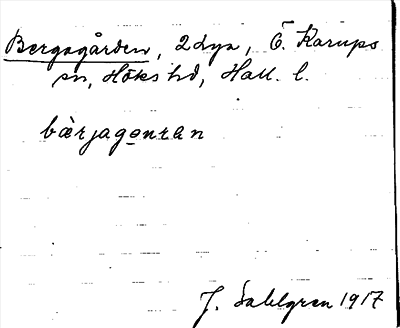 Bergsgården, 2 Lya, Ö. Karups
sn, Höks hd, Hall. l.
bærjagọnran
J. Sahlgren 1917